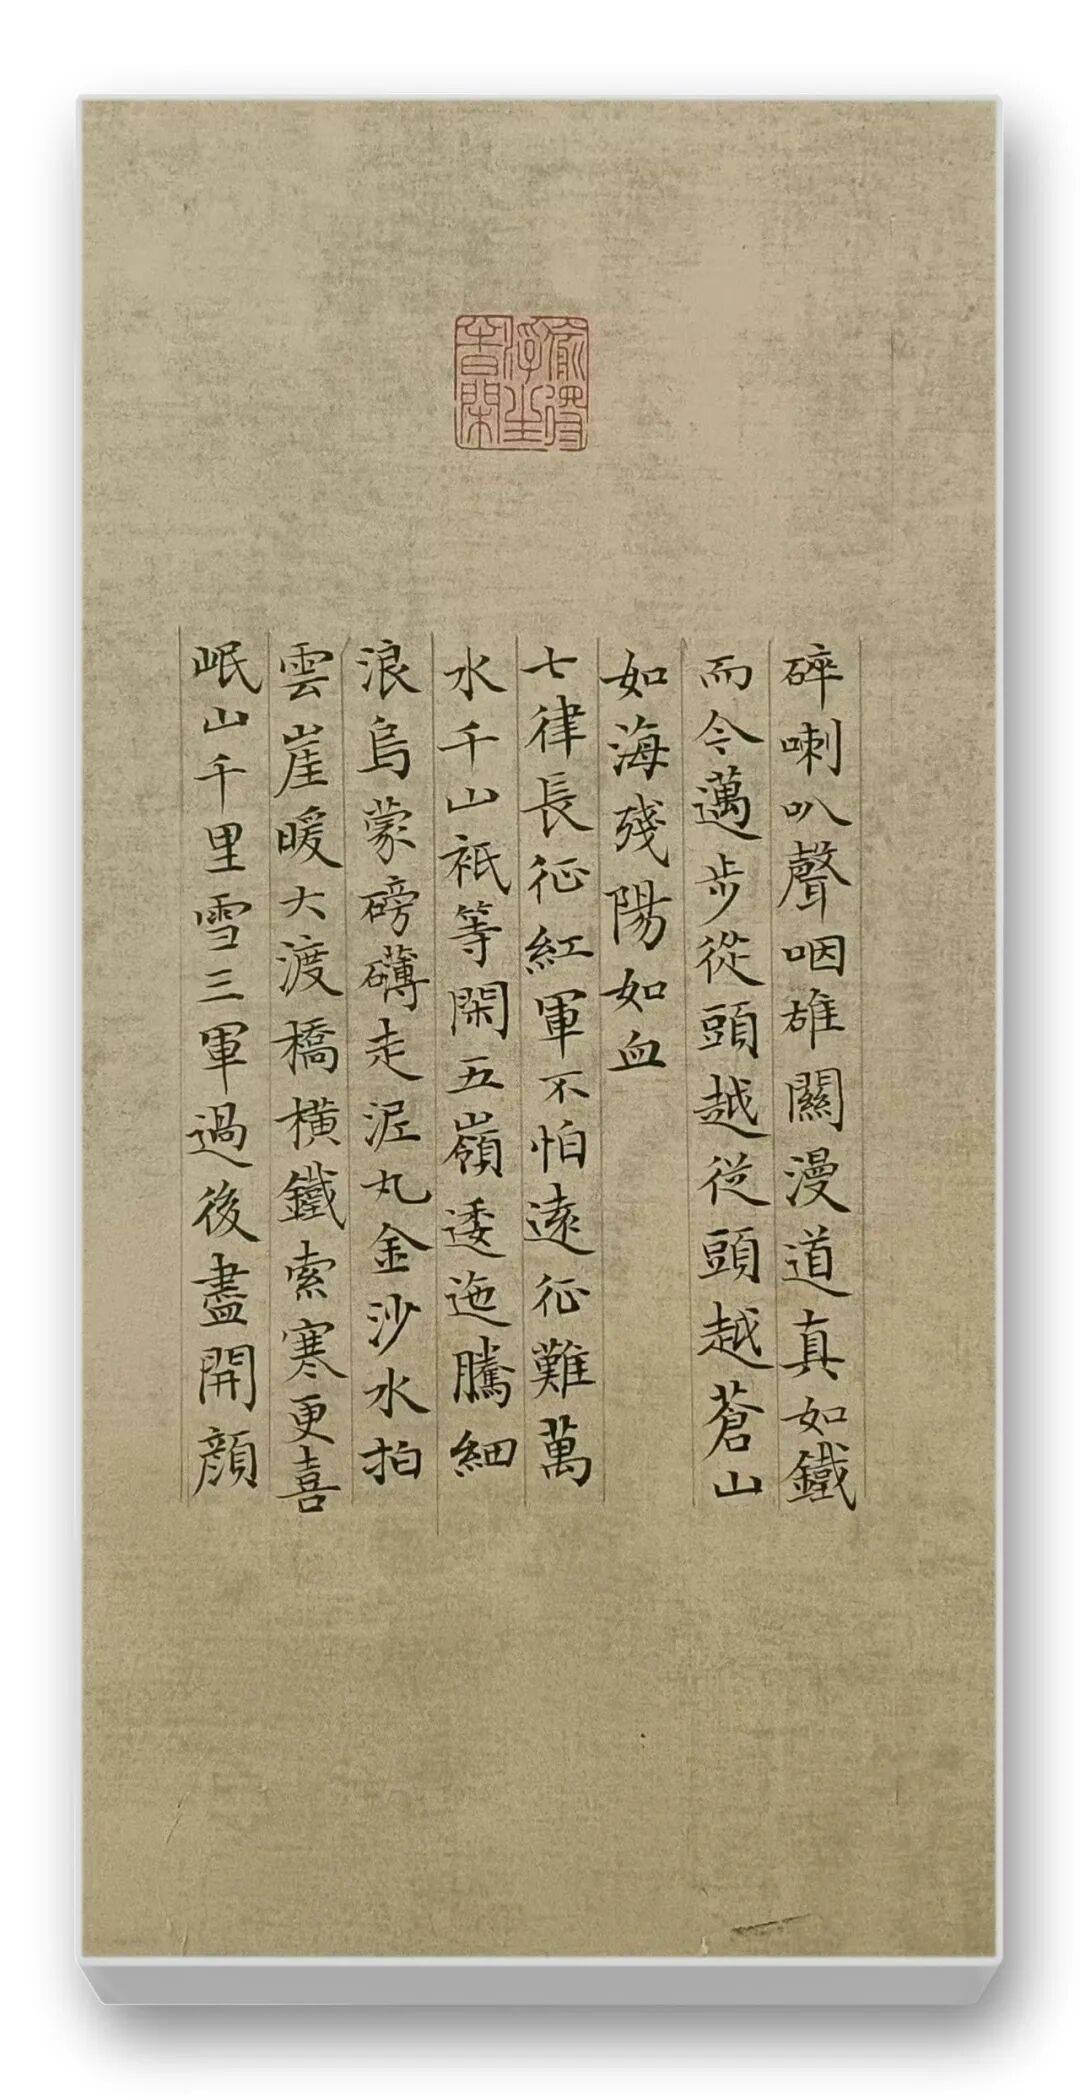 偷得浮生半日閑
碎喇叭聲咽雄關漫道真如鐵
而今邁步從頭越從頭越蒼山
如海殘陽如血
七律長征紅軍不怕遠征難萬
水千山祇等閑五嶺逶迤騰細
浪烏蒙磅礴走泥丸金沙水拍
雲崖暖大渡橋橫鐵索寒更喜
岷山千里雪三軍過後盡開顔